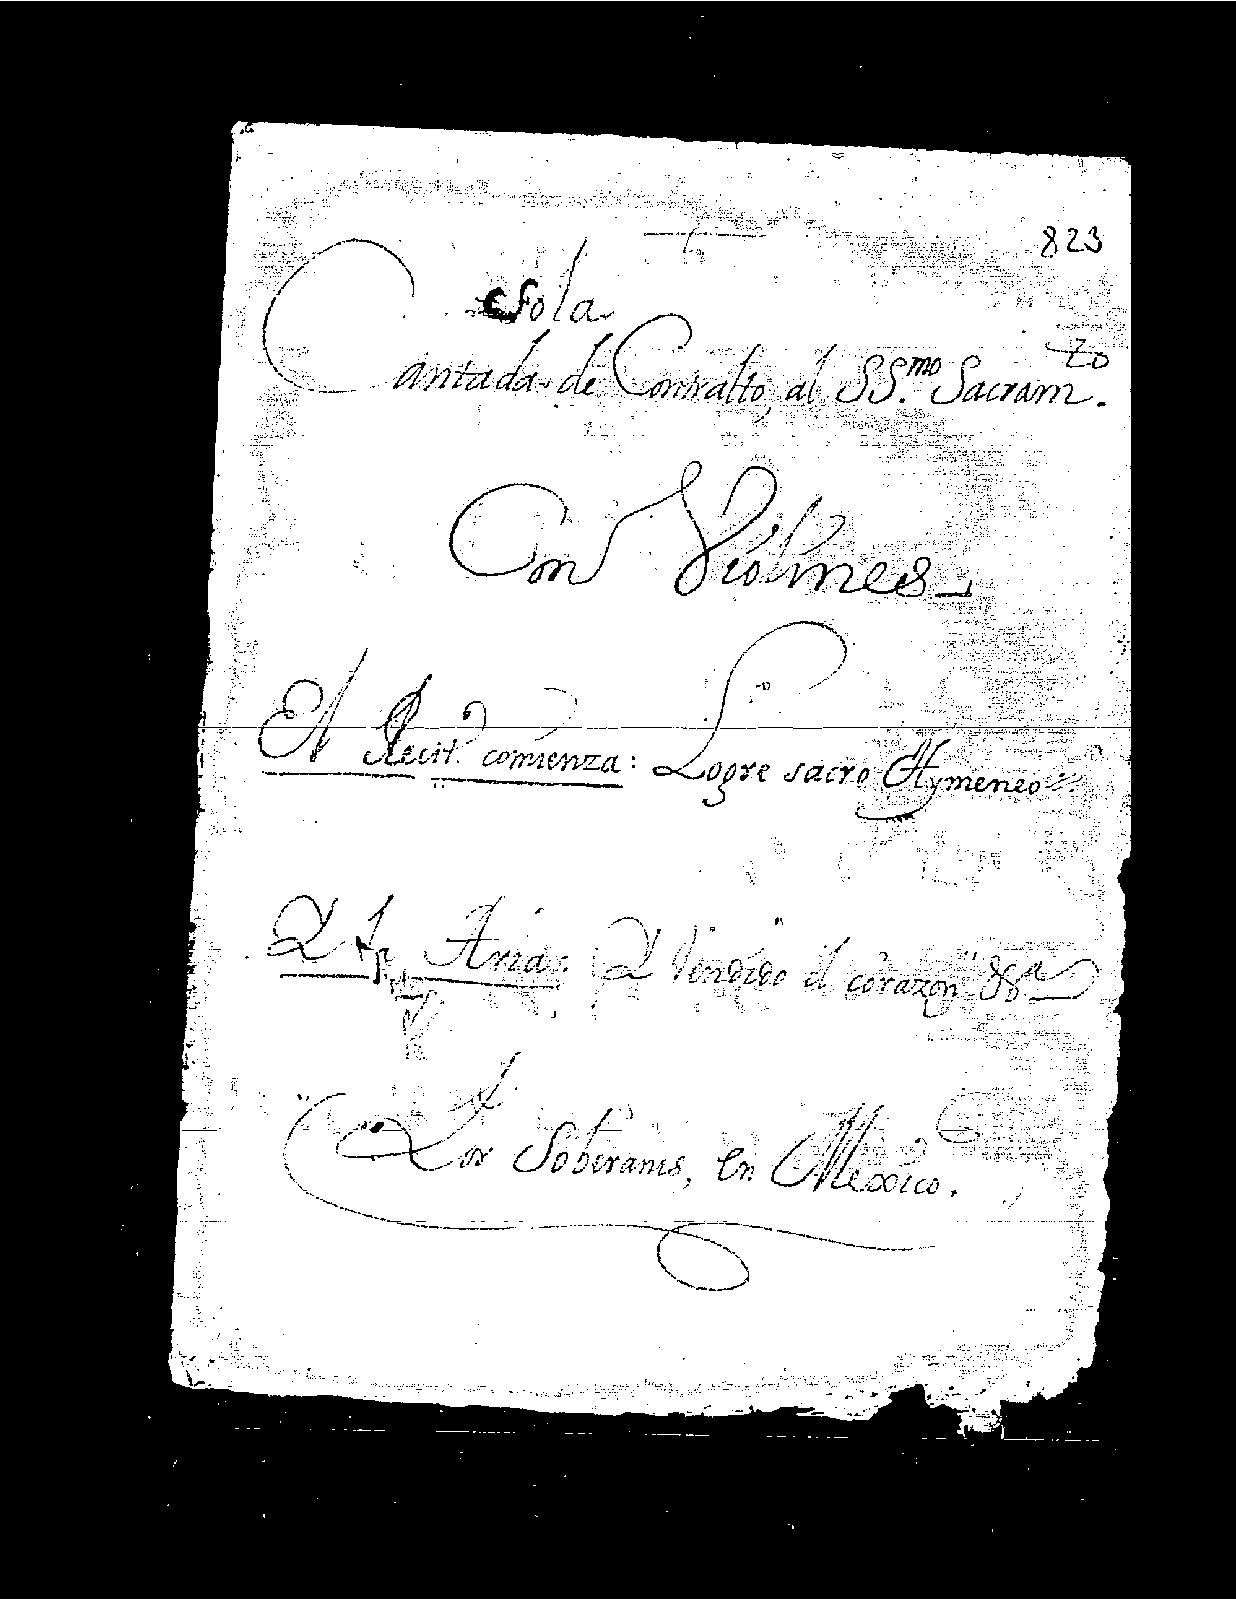 823
sola
Cantada de Contralto, al SS.mo Sacram.to
Con Violines
El Recit.o comienza: Logre sacro Hymeneo
Arias. Rendido el corazon &a
Por Soberanis, en Mexico.